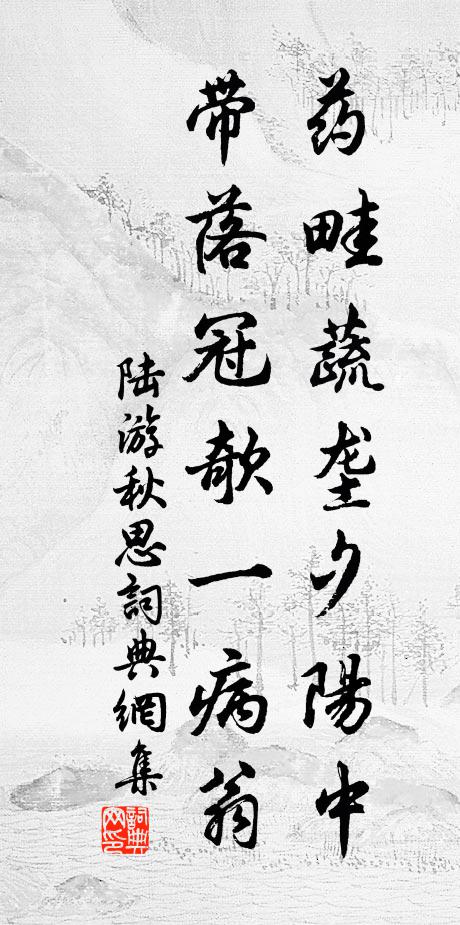 药畦蔬垄夕陽中
带落冠欹一病翁
陆游秋思詞典網集
詞典网印